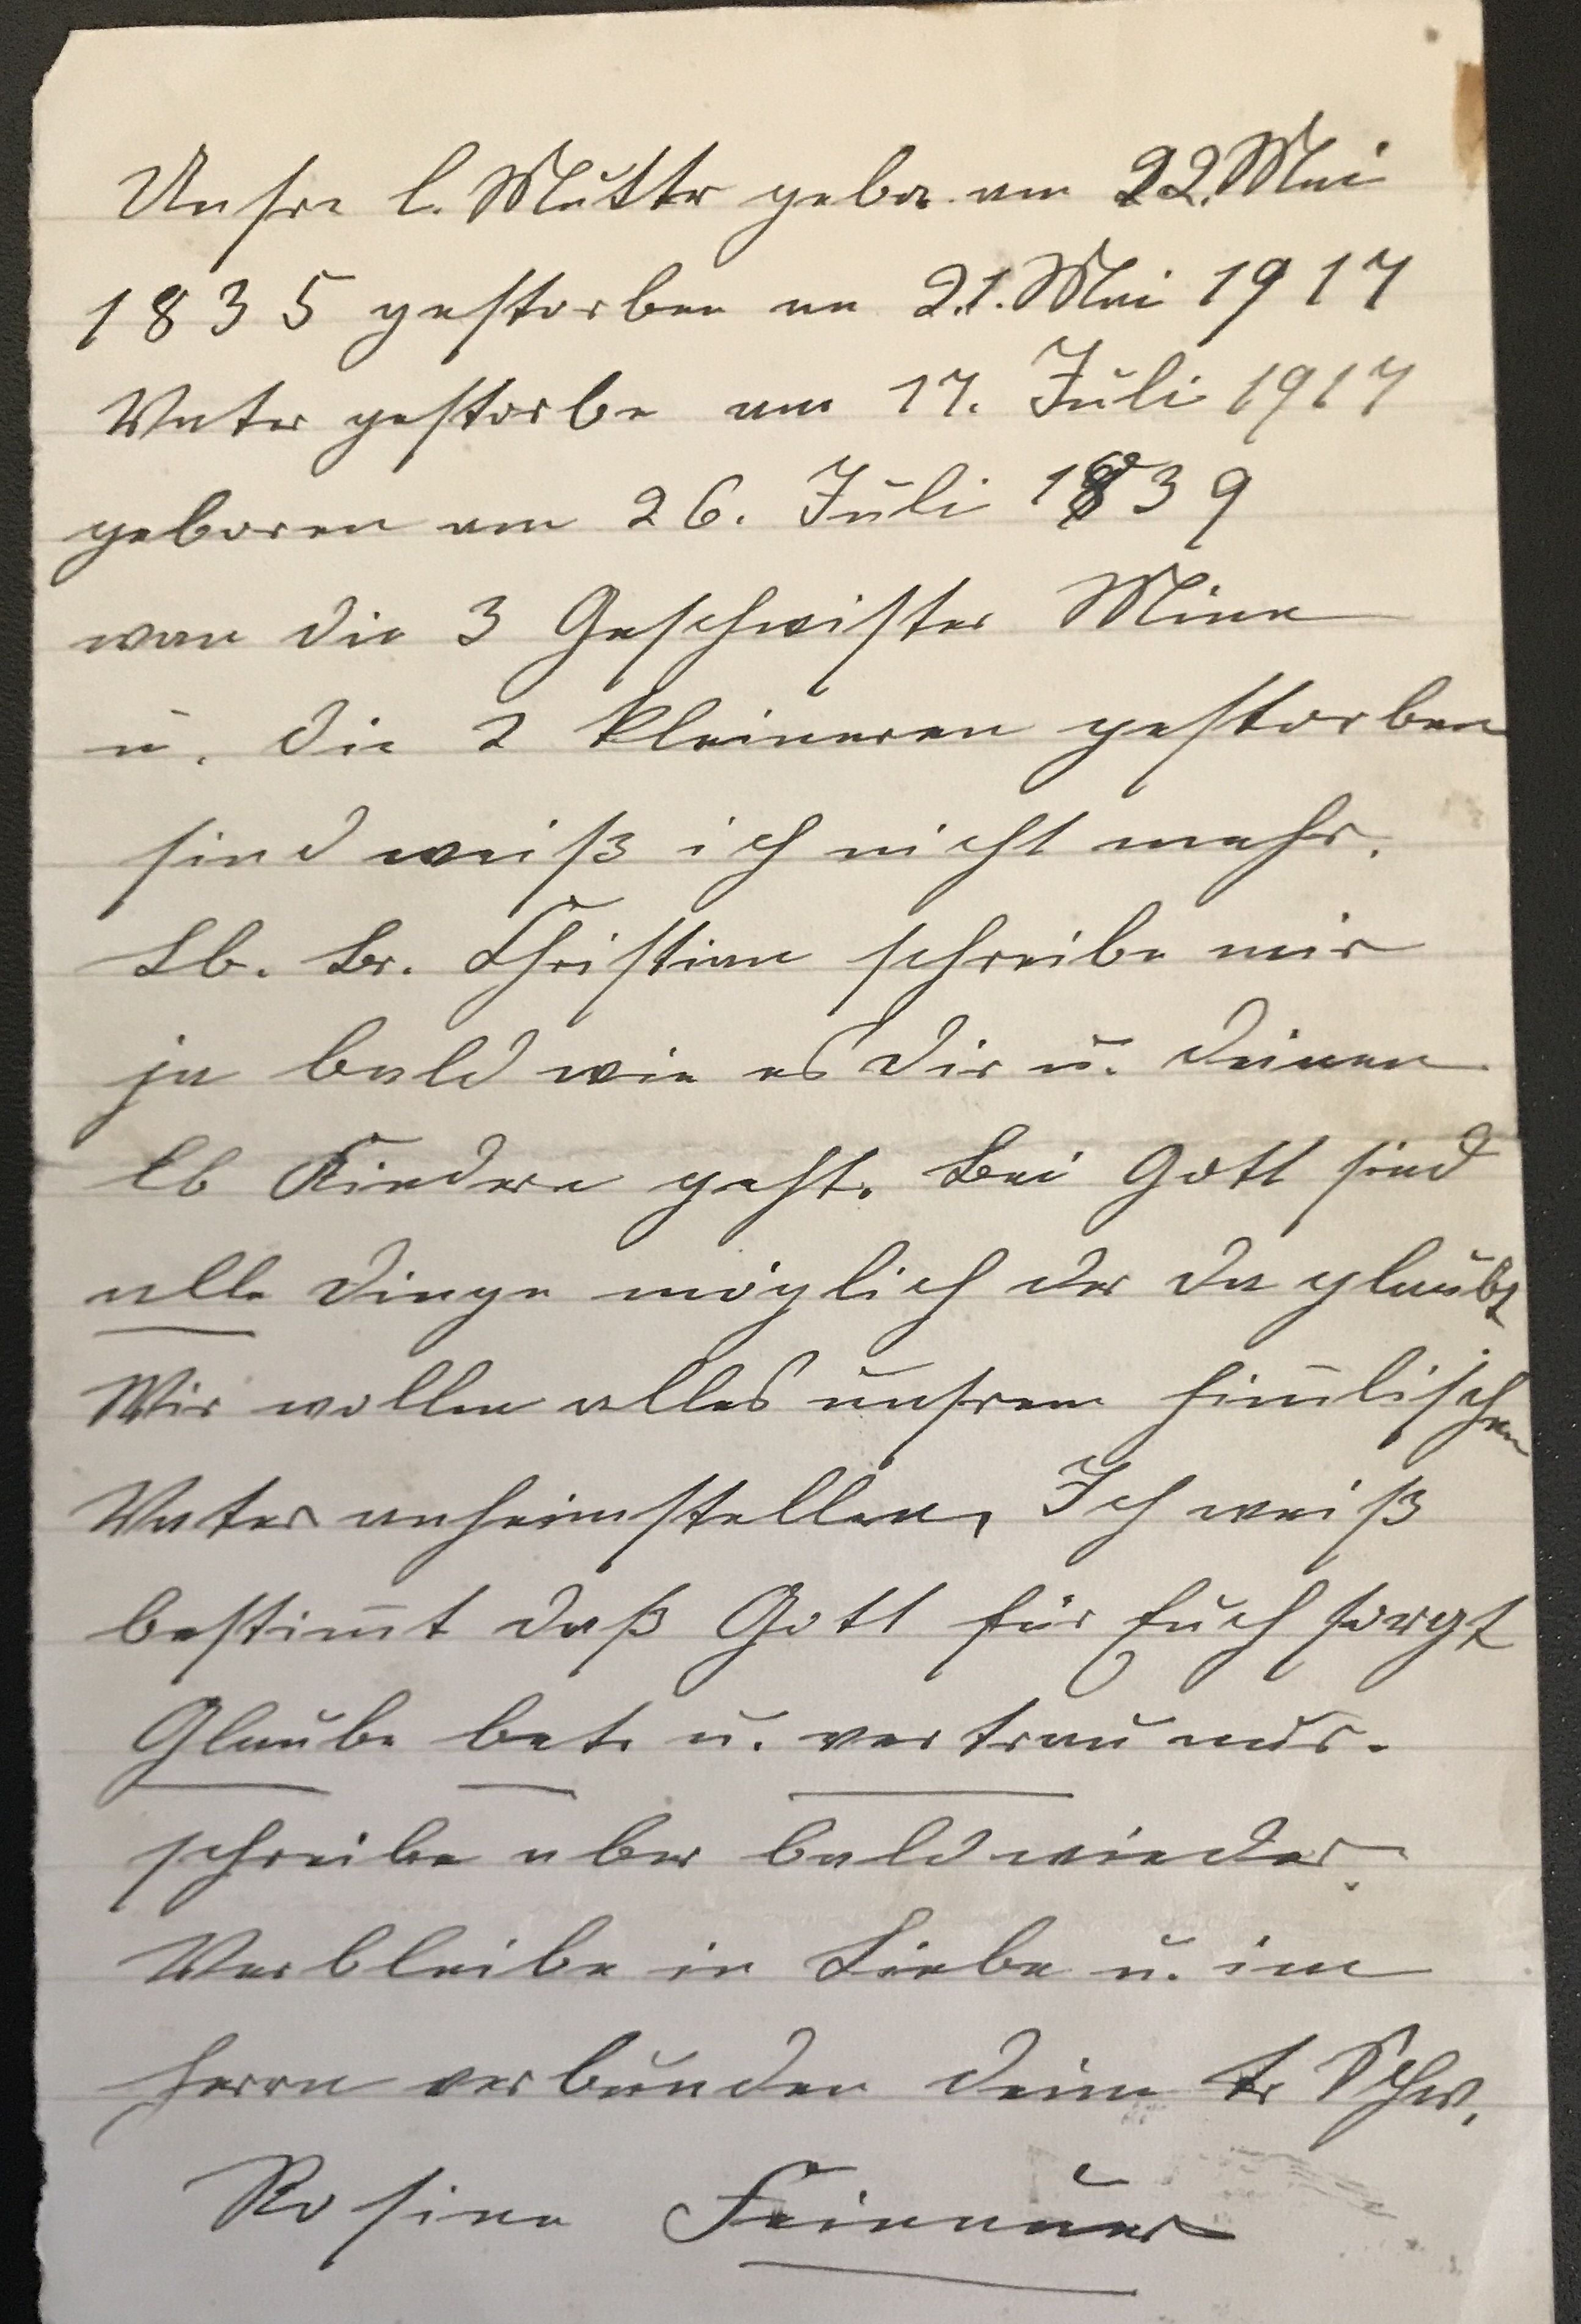 Unsre l. Mutter gebor. am 22. Mai
1835 gestorben am 21. Mai 1917
Vater gestorbe am 17. Juli 1917
geboren am 26. Juli 1839
wan die 3 Geschwister Mina
u. die 2 kleineren gestorben
sind weiß ich nicht mehr.
Lb. Br. Christian schreibe mir
ja bald wie es Dir u. Deinen
lb Kindern geht. Bei Gott sind
alle Dinge möglich der da glaubt
Wir wollen alles unsrem him̅lischen
Vater anheimstellen, Ich weiß
bestim̅t daß Gott für Euch sorgt
Glaube bete u. vertrau nur.
schreibe aber bald wieder.
Verbleibe in Liebe u. im
Herrn verbunden Deine tr Schw.
Rosine Feinauer